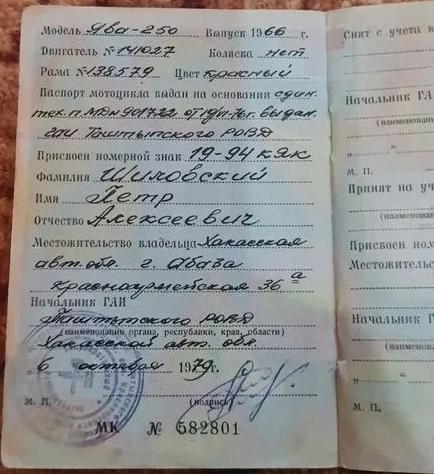 Модель Ява-250 Выпуск 1966 г.
Двигатель № 141027 Коляска нет
Рама № 138579 Цвет красный
Паспорт мотоцикла выдан на основании сдан.
тех. п. МД № 901722 от выдан.
гаи Таштыпского РОВД
Присвоен номерной знак 19-94 кяк
Фамилия Шиловский
Имя Петр
Отчество Алексеевич
Местожительство владельца Хакасская
авт. обл. г. Абаза
красноармейская 36 а
Начальник ГАИ
Таштыпского РОВД
(наименование органа, республики, края, области)
Хакасской авт. обл.
6 октября 1979 г.
(подпись)
М. П.
МК № 582801
Снят с учета
Начальник ГА
(наименование
М. П.
Принят на уч
(наименован
Присвоен ном
Местожительс
Начальник Г
(наименован
М. П.